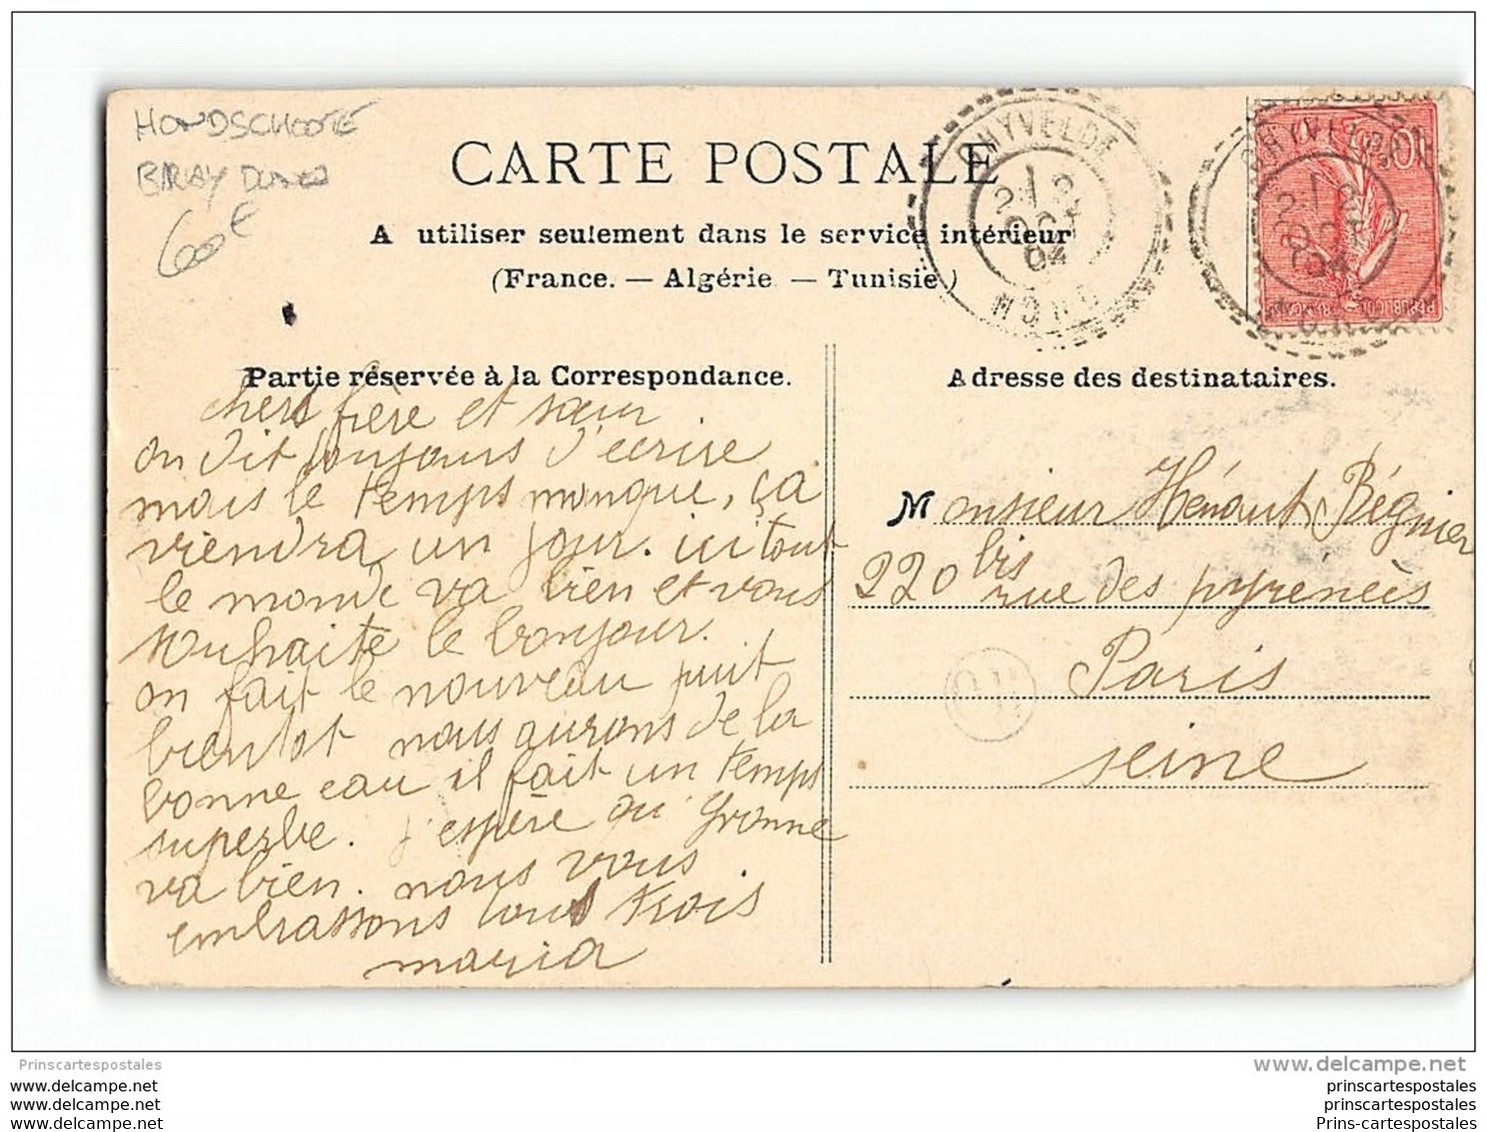 HONDSCHOOTE
BRAY DUNES
60€
CARTE POSTALE
A utiliser seulement dans le service intérieur
(France. — Algérie — Tunisie)
GHYVELDE
2 OCT 04
NORD
GHYVELDE
04
NORD
10
REPUBLIQUE FRANÇAISE
Partie réservée à la Correspondance.
Adresse des destinataires.
chers frère et sœur
on dit toujours d'écrire
mais le temps manque, ça
viendra un jour. ici tout
le monde va bien et vous
souhaite le bonjour.
on fait le nouveau puit
bientot nous aurons de la
bonne eau il fait un temps
superbe. j'espère qu' Yvonne
va bien. nous vous
embrassons tous trois
maria
Monsieur Hénaut Bégnier
220 bis rue des pyrénées
Paris
seine
OR
Prinscartespostales
www.delcampe.net
www.delcampe.net
www.delcampe.net
www.delcampe.net
prinscartespostales
prinscartespostales
Prins-cartespostales